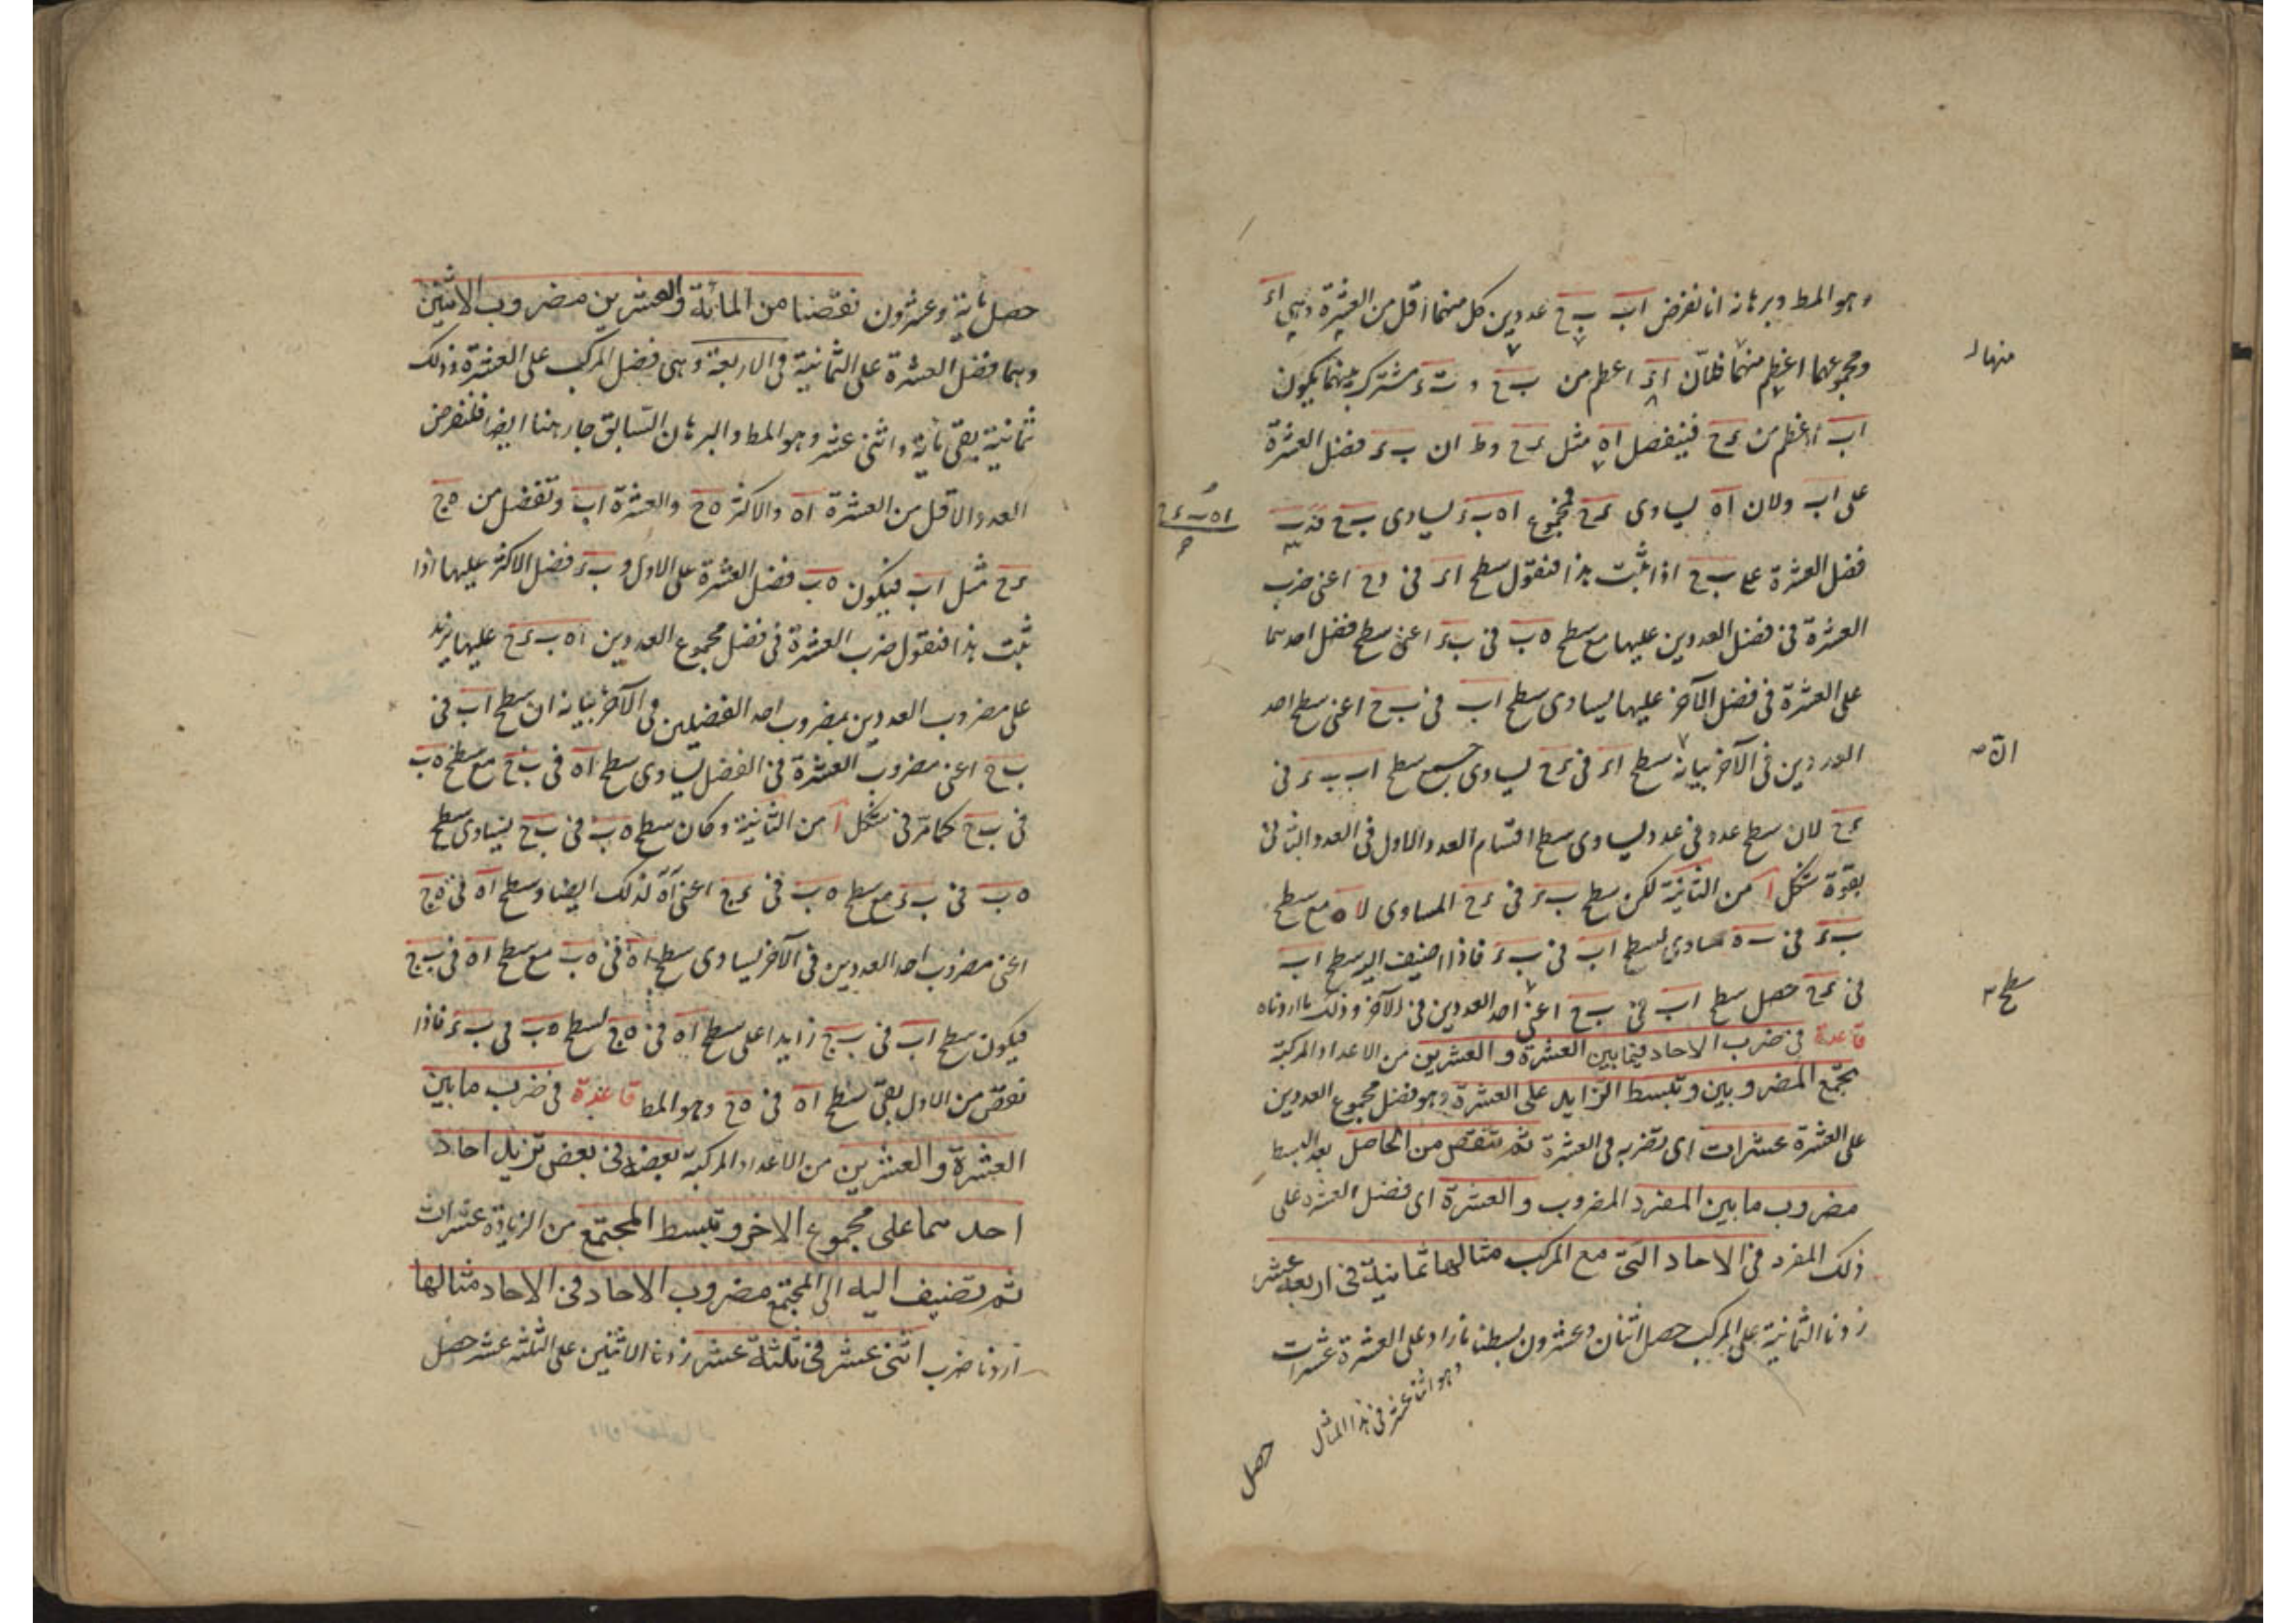 وهو المط وبرهانه انا نفرض اب ب ح عددين كل منهما اقل من العشرة وهي اء
ومجموعهما اعظم منهما فلان اء اعظم من ب ح و ب ء مشترك بينهما يكون
منها
اب اعظم من ء ح فينفصل اه مثل ء ح وظ ان ب ء فضل العشرة
على اب ولان اه يساوى ء ح فمجموع اه ب ء يساوى ب ح
اه ب ء ح
فضل العشرة على ب ح اذا ثبت هذا فنقول سطح اء فى ح اعنى ضرب
العشرة فى فضل العددين عليها مع سطح ه ب فى ب ء اعنى سطح فضل احدهما
على العشرة فى فضل الآخر عليها يساوى سطح اب فى ب ح اعنى سطح احد
العددين فى الآخر بيانه سطح اء فى ء ح يساوى سطح اب ب ء فى
ء ح لان سطح عدد فى عدد يساوى سطح اقسام العدد الاول فى العدد الثانى
بقوة شكل ا من الثانية لكن سطح ب ء فى ء ح المساوى لا ه مع سطح
ب ء فى ب ه مساوى لسطح اب فى ب ء فاذا اضيف اليه سطح اب
فى ء ح حصل سطح اب فى ب ح اعنى احد العددين فى الآخر وذلك ما اردناه
سطح
قاعدة فى ضرب الاحاد فيما بين العشرة والعشرين من الاعداد المركبة
تجمع المضروبين وتبسط الزايد على العشرة وهو فضل مجموع العددين
على العشرة عشرات اى تضربه فى العشرة ثم تنقص من الحاصل بعد البسط
مضروب ما بين المفرد المضروب والعشرة اى فضل العشرة على
ذلك المفرد فى الاحاد التى مع المركب مثالها ثمانية فى اربعة عشر
زدنا الثمانية على المركب حصل اثنان وعشرون بسطنا ما زاد على العشرة عشرات
وهو اثنى عشر فى هذا المثال
حصل
حصل مائة وعشرون نقصنا من المائة والعشرين مضروب الاثنين
وهما فضل العشرة على الثمانية فى الاربعة وهى فضل المركب على العشرة وذلك
ثمانية بقى مائة واثنى عشر وهو المط والبرهان السابق جار هنا ايضا فلنفرض
العدد الاقل من العشرة اه والاكثر ه ح والعشرة اب وتفضل من ه ح
ء ح مثل اب فيكون ه ب فضل العشرة على الاول و ب ء فضل الاكثر عليها اذا
ثبت هذا فنقول ضرب العشرة فى فضل مجموع العددين اه ب ء ح عليها يزيد
على مضروب العددين بمضروب احد الفضلين فى الآخر بيانه ان سطح اب فى
ب ح اعنى مضروب العشرة فى الفضل يساوى سطح اه فى ب ح مع سطح ه ب
فى ب ح كما مر فى شكل ا من الثانية وكان سطح ه ب فى ب ح يساوى سطح
ه ب فى ب ء مع سطح ه ب فى ء ح اعنى اه لذلك ايضا وسطح اه فى ه ح
اعنى مضروب احد العددين فى الآخر يساوى سطح اه فى ه ب مع سطح اه فى ب ح
فيكون سطح اب فى ب ح زايدا على سطح اه فى ه ح لسطح ه ب فى ب ء فاذا
نقص من الاول بقى سطح اه فى ه ح وهو المط قاعدة فى ضرب ما بين
العشرة والعشرين من الاعداد المركبة بعضها فى بعض تزيد احاد
احدهما على مجموع الاخر وتبسط المجتمع من الزيادة عشرات
ثم تضيف اليه الى المجتمع مضروب الاحاد فى الاحاد مثالها
اردنا ضرب اثنى عشر فى ثلثة عشر زدنا الاثنين على الثلثه عشر حصل